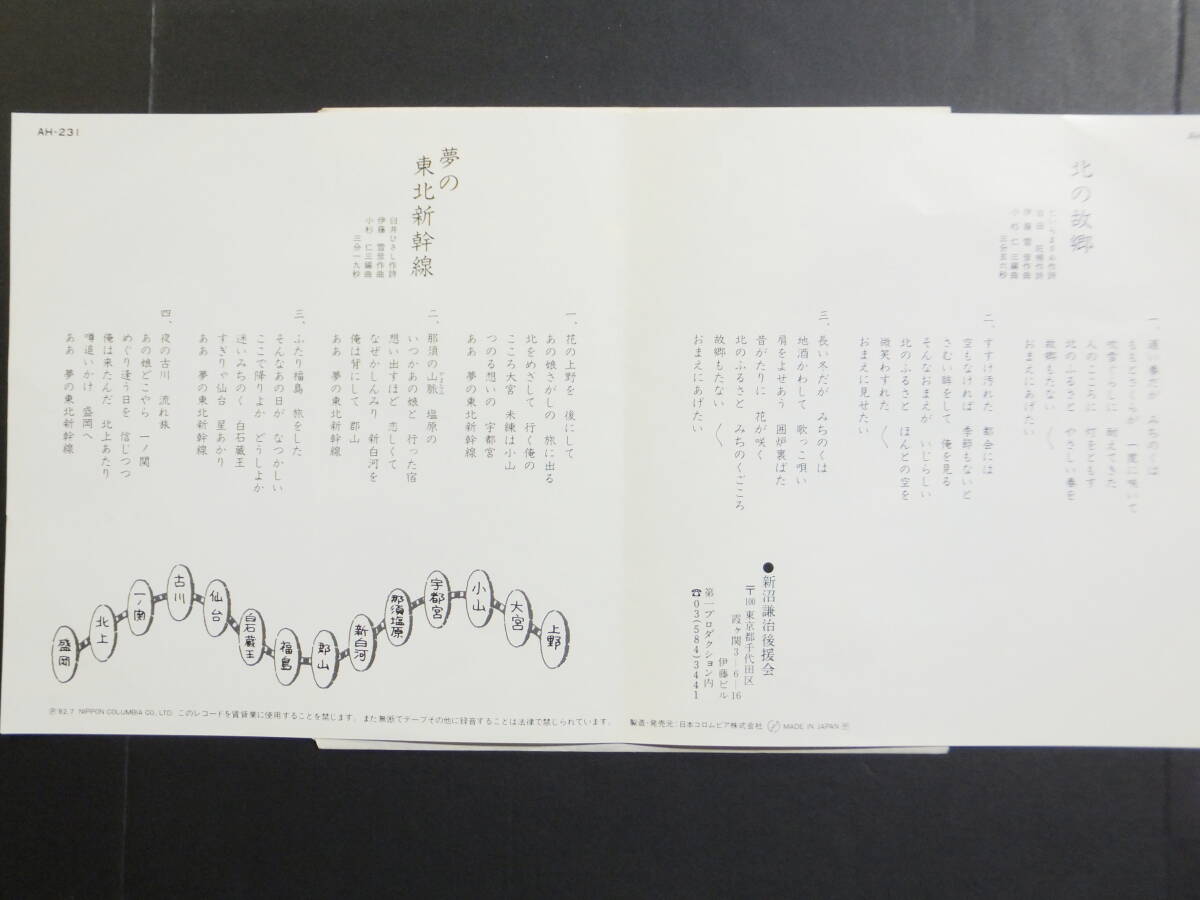 AH-231
北の故郷
伊藤雪彦作曲
小杉仁三編曲
三分五六秒
一、遅い春だが みちのくは
ももとさくらが 一度に咲いて
吹雪ぐらしに 耐えてきた
人のこころに 灯をともす
北のふるさと やさしい春を
故郷もたない 〱
おまえにあげたい
二、すすけ汚れた 都会には
空もなければ 季節もないと
さむい眸をして 俺を見る
そんなおまえが いじらしい
北のふるさと ほんとの空を
微笑わすれた 〱
おまえに見せたい
三、長い冬だが みちのくは
地酒かわして 歌っこ唄い
肩をよせあう 囲炉裏ばた
昔がたりに 花が咲く
北のふるさと みちのくごころ
故郷もたない 〱
おまえにあげたい
●新沼謙治後援会
〒100 東京都千代田区
霞ヶ関3-6-16
伊藤ビル
第一プロダクション内
☎03(584)3441
夢の
東北新幹線
臼井ひさし作詩
伊藤雪彦作曲
小杉仁三編曲
三分一九秒
一、花の上野を 後にして
あの娘さがしの 旅に出る
北をめざして 行く俺の
こころ大宮 未練は小山
つのる想いの 宇都宮
ああ 夢の東北新幹線
二、那須の山脈 塩原の
いつかあの娘と 行った宿
想い出すほど 恋しくて
なぜかしんみり 新白河を
俺は背にして 郡山
ああ 夢の東北新幹線
三、ふたり福島 旅をした
そんなあの日が なつかしい
ここで降りよか どうしよか
迷いみちのく 白石蔵王
すぎりゃ仙台 星あかり
ああ 夢の東北新幹線
四、夜の古川 流れ旅
あの娘どこやら 一ノ関
めぐり逢う日を 信じつつ
俺は来たんだ 北上あたり
噂追いかけ 盛岡へ
ああ 夢の東北新幹線
盛岡
北上
一ノ関
古川
仙台
白石蔵王
福島
郡山
新白河
那須塩原
宇都宮
小山
大宮
上野
Ⓟ'82.7 NIPPON COLUMBIA CO., LTD. このレコードを賃貸業に使用することを禁じます。また無断でテープその他に録音することは法律で禁じられています。 製造・発売元:日本コロムビア株式会社 MADE IN JAPAN